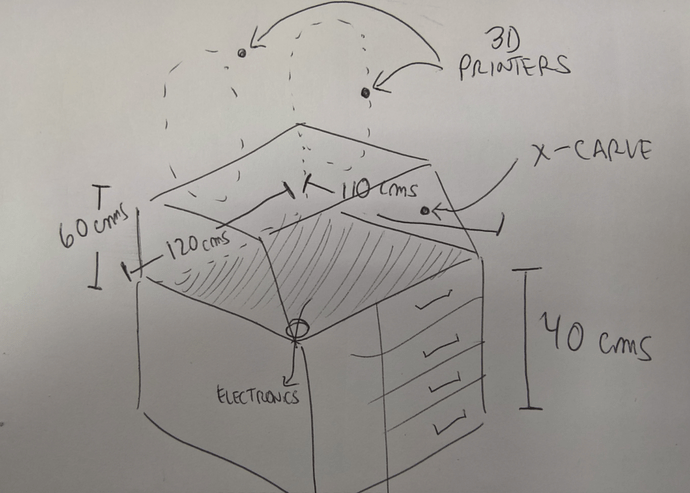 3D
PRINTERS
X-CARVE
110 cms
60 cms
120 cms
40 cms
ELECTRONICS